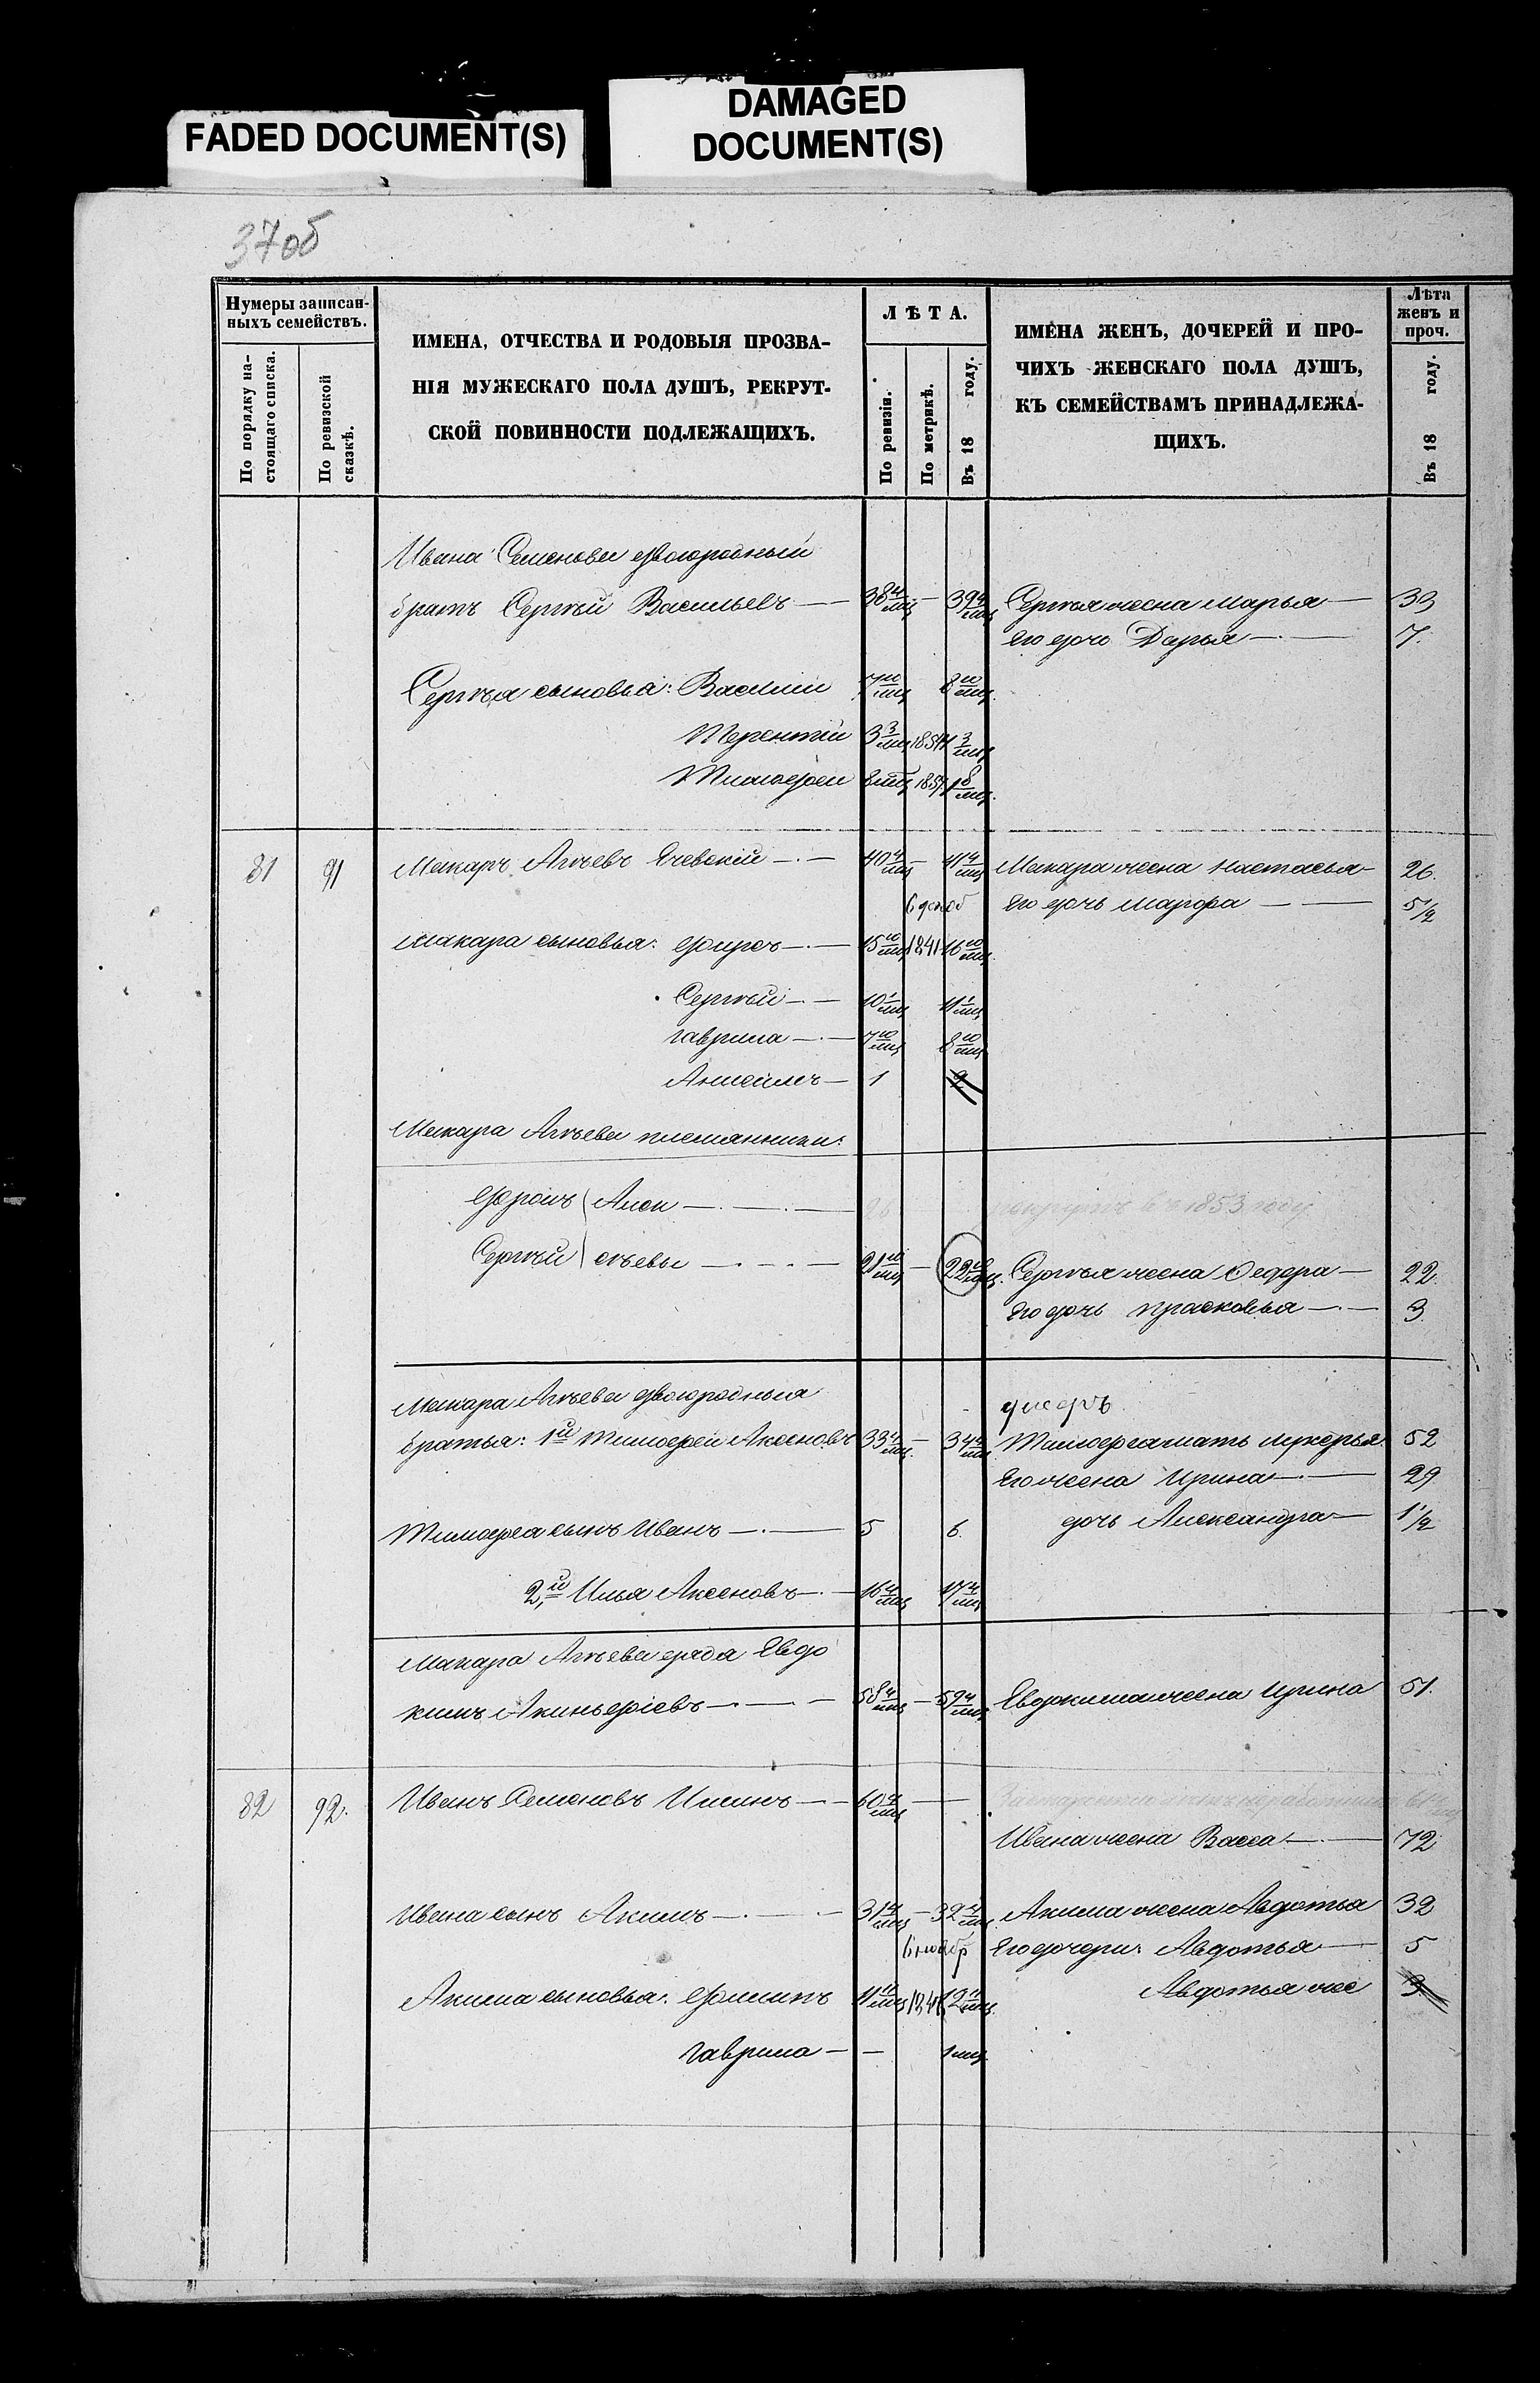 FADED DOCUMENT(S)
DAMAGED
DOCUMENT(S)
37об
Нумеры записан-
ныхъ семействъ.
По порядку на-
стоящаго списка.
По ревизской
сказкѣ.
ИМЕНА, ОТЧЕСТВА И РОДОВЫЯ ПРОЗВА-
НІЯ МУЖЕСКАГО ПОЛА ДУШЪ, РЕКРУТ-
СКОЙ ПОВИННОСТИ ПОДЛЕЖАЩИХЪ.
ЛѢТА.
По ревизіи.
По метрикѣ.
Въ 18 году.
ИМЕНА ЖЕНЪ, ДОЧЕРЕЙ И ПРО-
ЧИХЪ ЖЕНСКАГО ПОЛА ДУШЪ,
КЪ СЕМЕЙСТВАМЪ ПРИНАДЛЕЖА-
ЩИХЪ.
Лѣта
женъ и
проч.
Въ 18 году.
Ивана Семенова двоюродный
братъ Сергѣй Васильевъ — 38 4/мц — 39 4/мц Сергѣя жена Марья — 33
его дочь Дарья — 7.
Сергѣя сыновья: Василій 7 10/мц 8 10/мц.
Терентій 3 3/мц 1854 4 3/мц
Тимофей 8 мц 1857 1 8/мц.
81 91 Макаръ Агѣевъ — 40 4/мц — 41 4/мц Макара жена Настасья — 26.
6 декаб его дочь Марфа — 5 1/2
Макара сыновья: — 15 10/мц 1841 16 10/мц.
Сергѣй — 10 1/мц 11 1/мц
Гаврила — 7 10/мц 8 10/мц
— 1 2
Макара Агѣева племянники:
Фролъ Алек — 26 рекрутъ въ 1853 году
Сергѣй сѣевы — 21 10/мц — 22 10/мц. Сергѣя жена Федора — 22.
его дочь Прасковья — 3
Макара Агѣева двоюродныя
братья: 1й Тимофей Аксеновъ 33 4/мц. — 34 4/мц Тимофея мать Лукерья 52
Его жена Ирина — 29
Тимофея сынъ Иванъ — 5 6. дочь Александра — 1 1/2
2,й Илья Аксеновъ — 16 4/мц 17 4/мц
Макара Агѣева дядя Евдо
кимъ — 58 4/мц — 59 4/мц Евдокима жена Ирина 51.
82 92. Иванъ Семеновъ — 60 4/мц —
Ивана жена Васса — 72
Ивана сынъ Акимъ — 31 4/мц — 32 4/мц. Акима жена Авдотья 32
6 ноябр Его дочери: Авдотья — 5
Акима сыновья: Филипъ 11 11/мц 12 11/мц. Авдотья же 3
Гаврила — — 1 мц